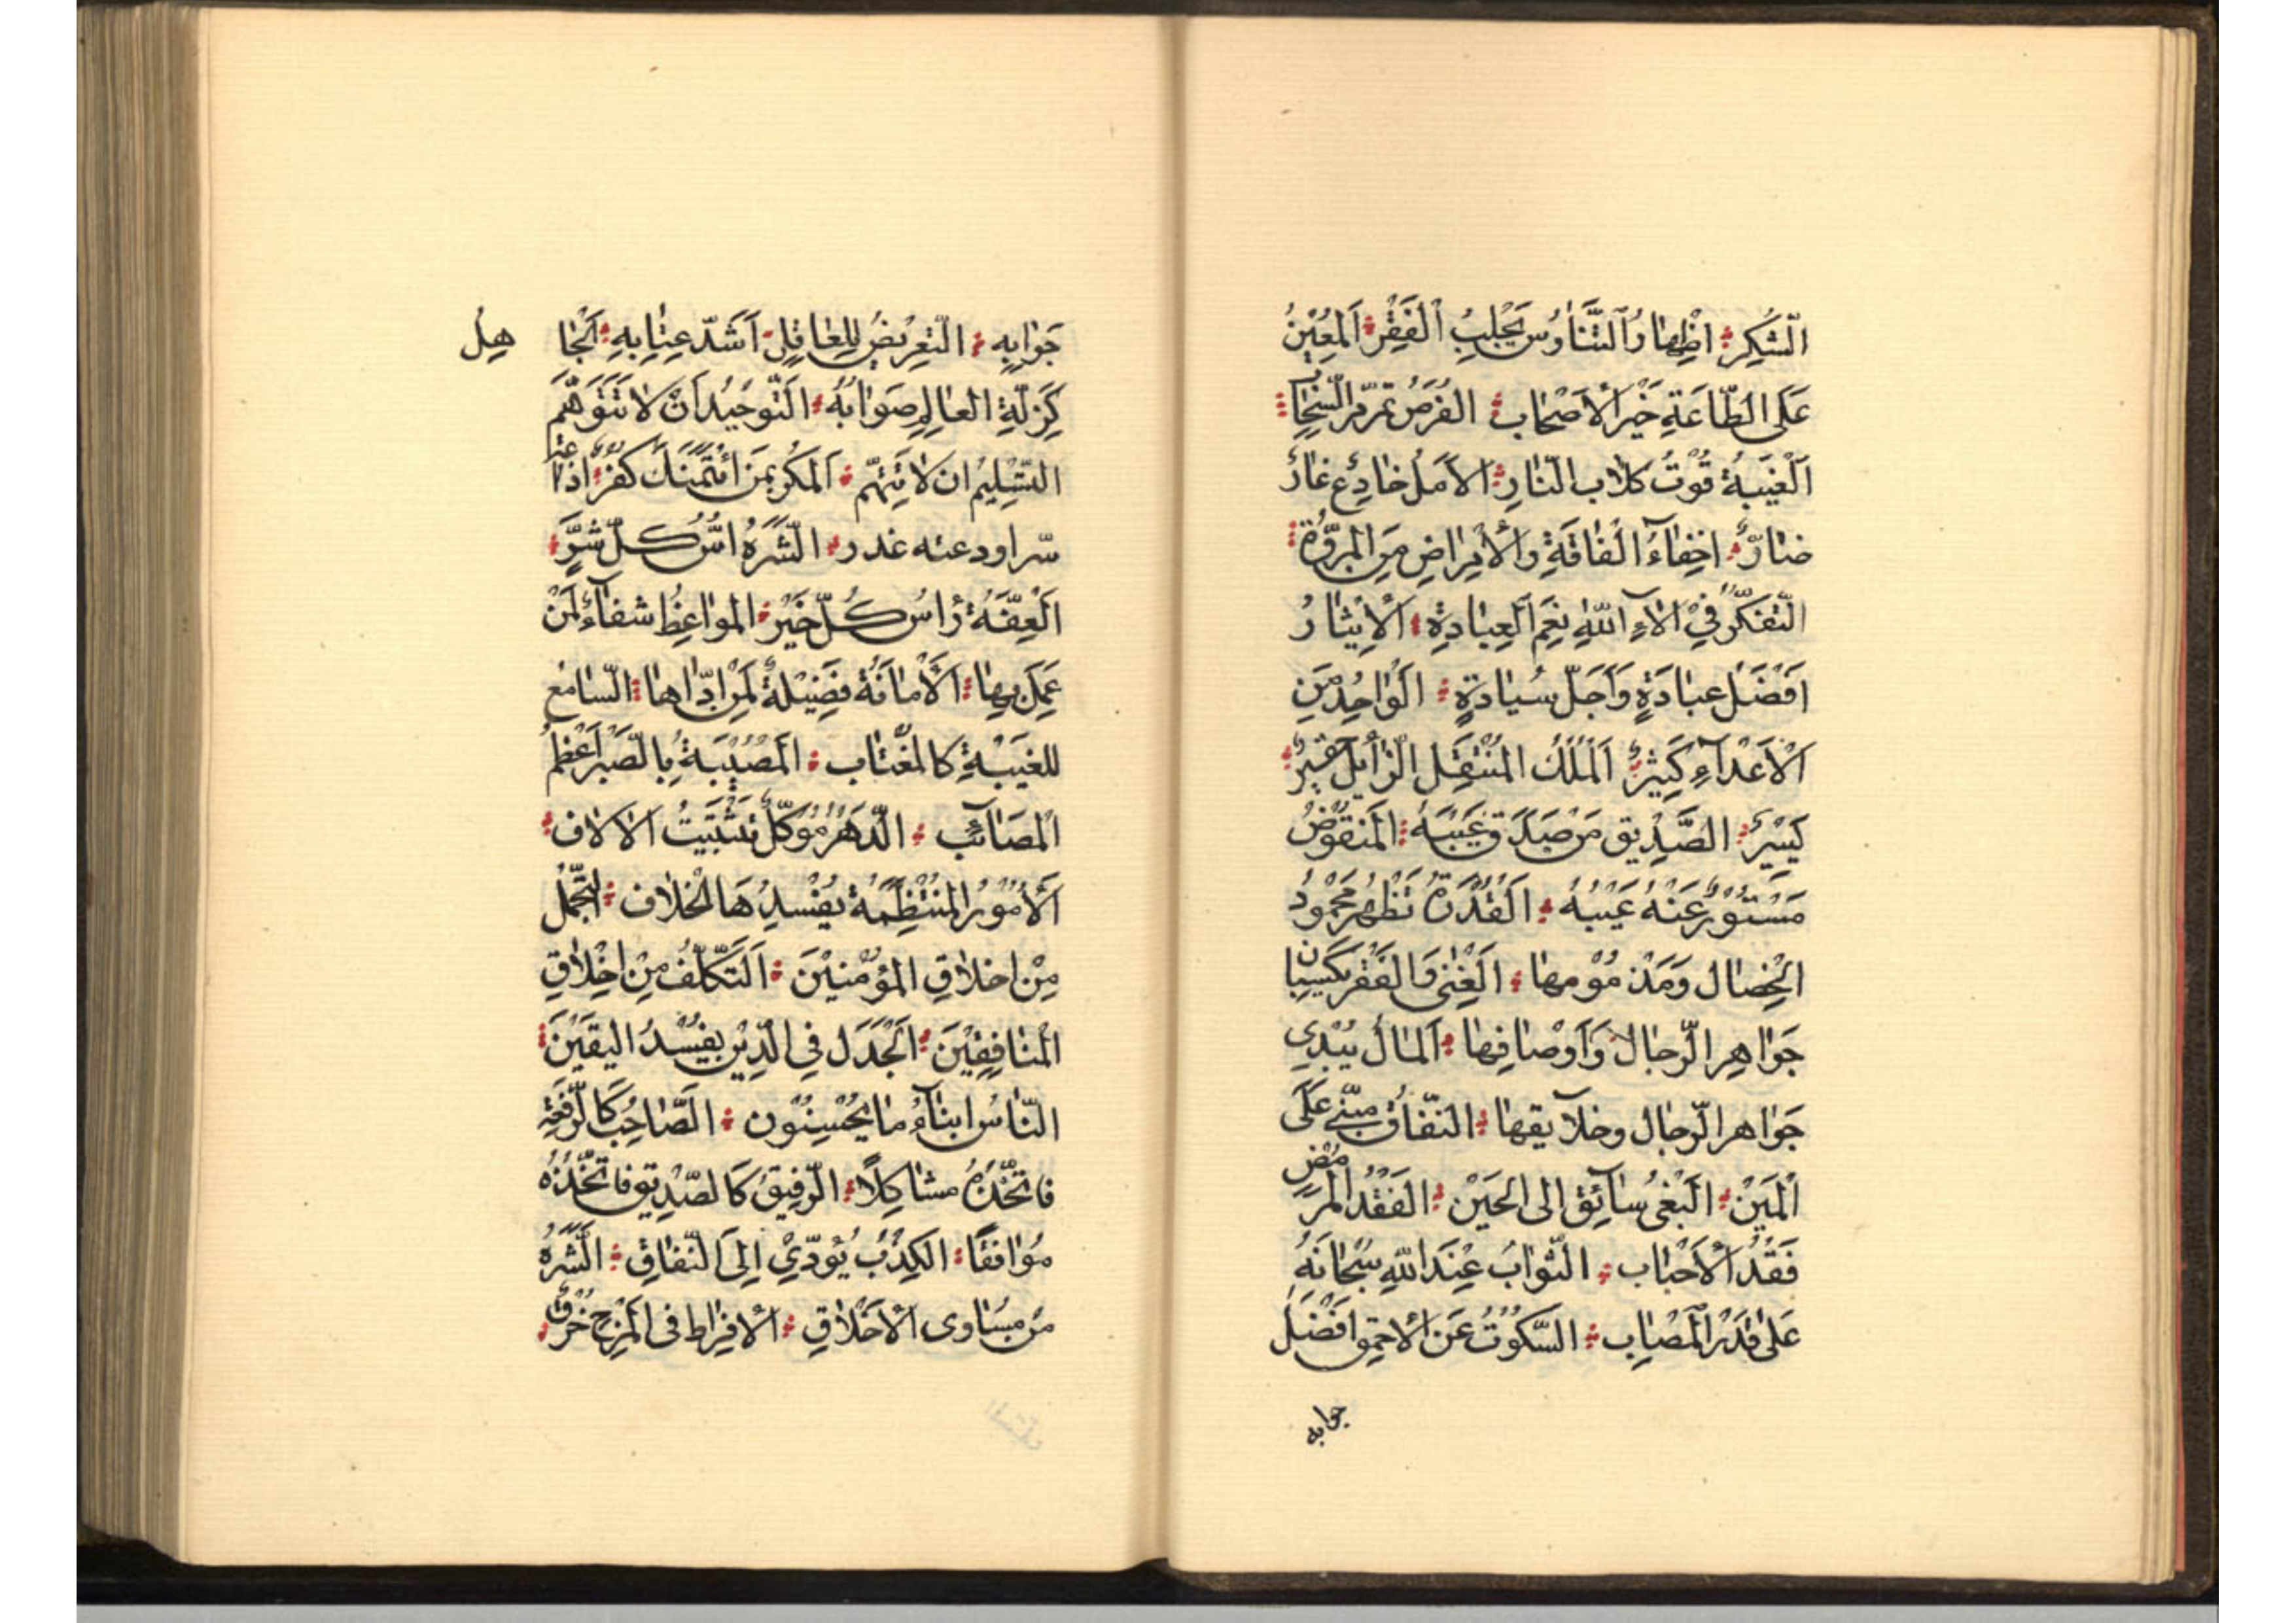 الشكر اظهار التباؤس يجلب الفقر المعين
على الطاعة خير الأصحاب الفرص تمر مر السحاب
الغيبة قوت كلاب النار الأمل خادع غار
ضار اخفاء الفاقة والأمراض من المروة
التفكر في آلاء الله نعم العبادة الإيثار
افضل عبادة وأجل سيادة الواحد من
الأعداء كثير الملك المنتقل الزايل حقير
يسير الصديق من صدق غيبه المنقوص
مستور عنه عيبه القدرة تظهر محمود
الخصال ومذمومها الغنى والفقر يكسبان
جواهر الرجال وأوصافها المال يبدي
جواهر الرجال وخلايقها النفاق مبني على
المين البغي سائق الى الحين الفقد الممرض
فقد الأحباب الثواب عند الله سبحانه
على قدر المصاب السكوت عن الأحمق افضل
جوابه
جوابه التعريض للعاقل أشد عتابه الجاهل
كزلة العالم صوابه التوحيد أن لا تتوهم
التسليم ان لا تتهم المكر بمن ائتمنك كفر اذاعة
سر اودعته غدر الشره اس كل شر
العفة رأس كل خير المواعظ شفاء لمن
عمل بها الأمانة فضيلة لمن اداها السامع
للغيبة كالمغتاب المصيبة بالصبر اعظم
المصائب الدهر موكل بتشتيت الالاف
الأمور المنتظمة يفسدها الخلاف التجمل
من اخلاق المؤمنين التكلف من اخلاق
المنافقين الجدل في الدين يفسد اليقين
الناس ابناء ما يحسنون الصاحب كالرقعة
فاتخذه مشاكلا الرفيق كالصديق فاتخذه
موافقا الكذب يؤدي إلى النفاق الشره
من مساوى الأخلاق الافراط فى المزح خرق